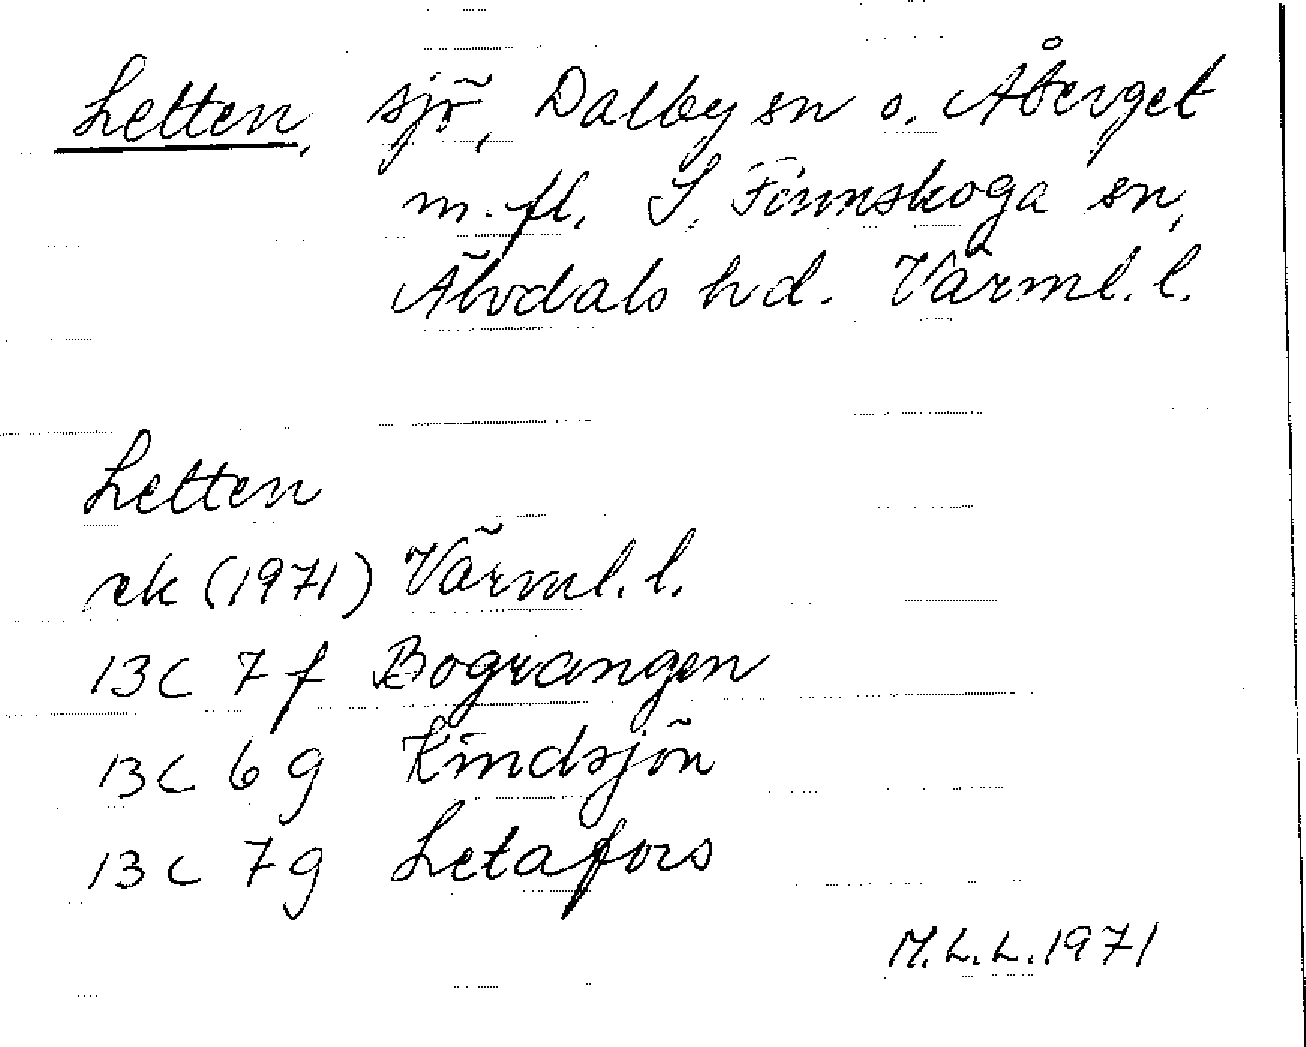 Letten, sjö, Dalby sn o. Åberget
m. fl. S. Finnskoga sn,
Älvdals hd. Värml. l.
Letten
rek (1971) Värml. l.
13C 7f Bograngen
13C 6g Kindsjön
13C 7g Letafors
M.L.L. 1971